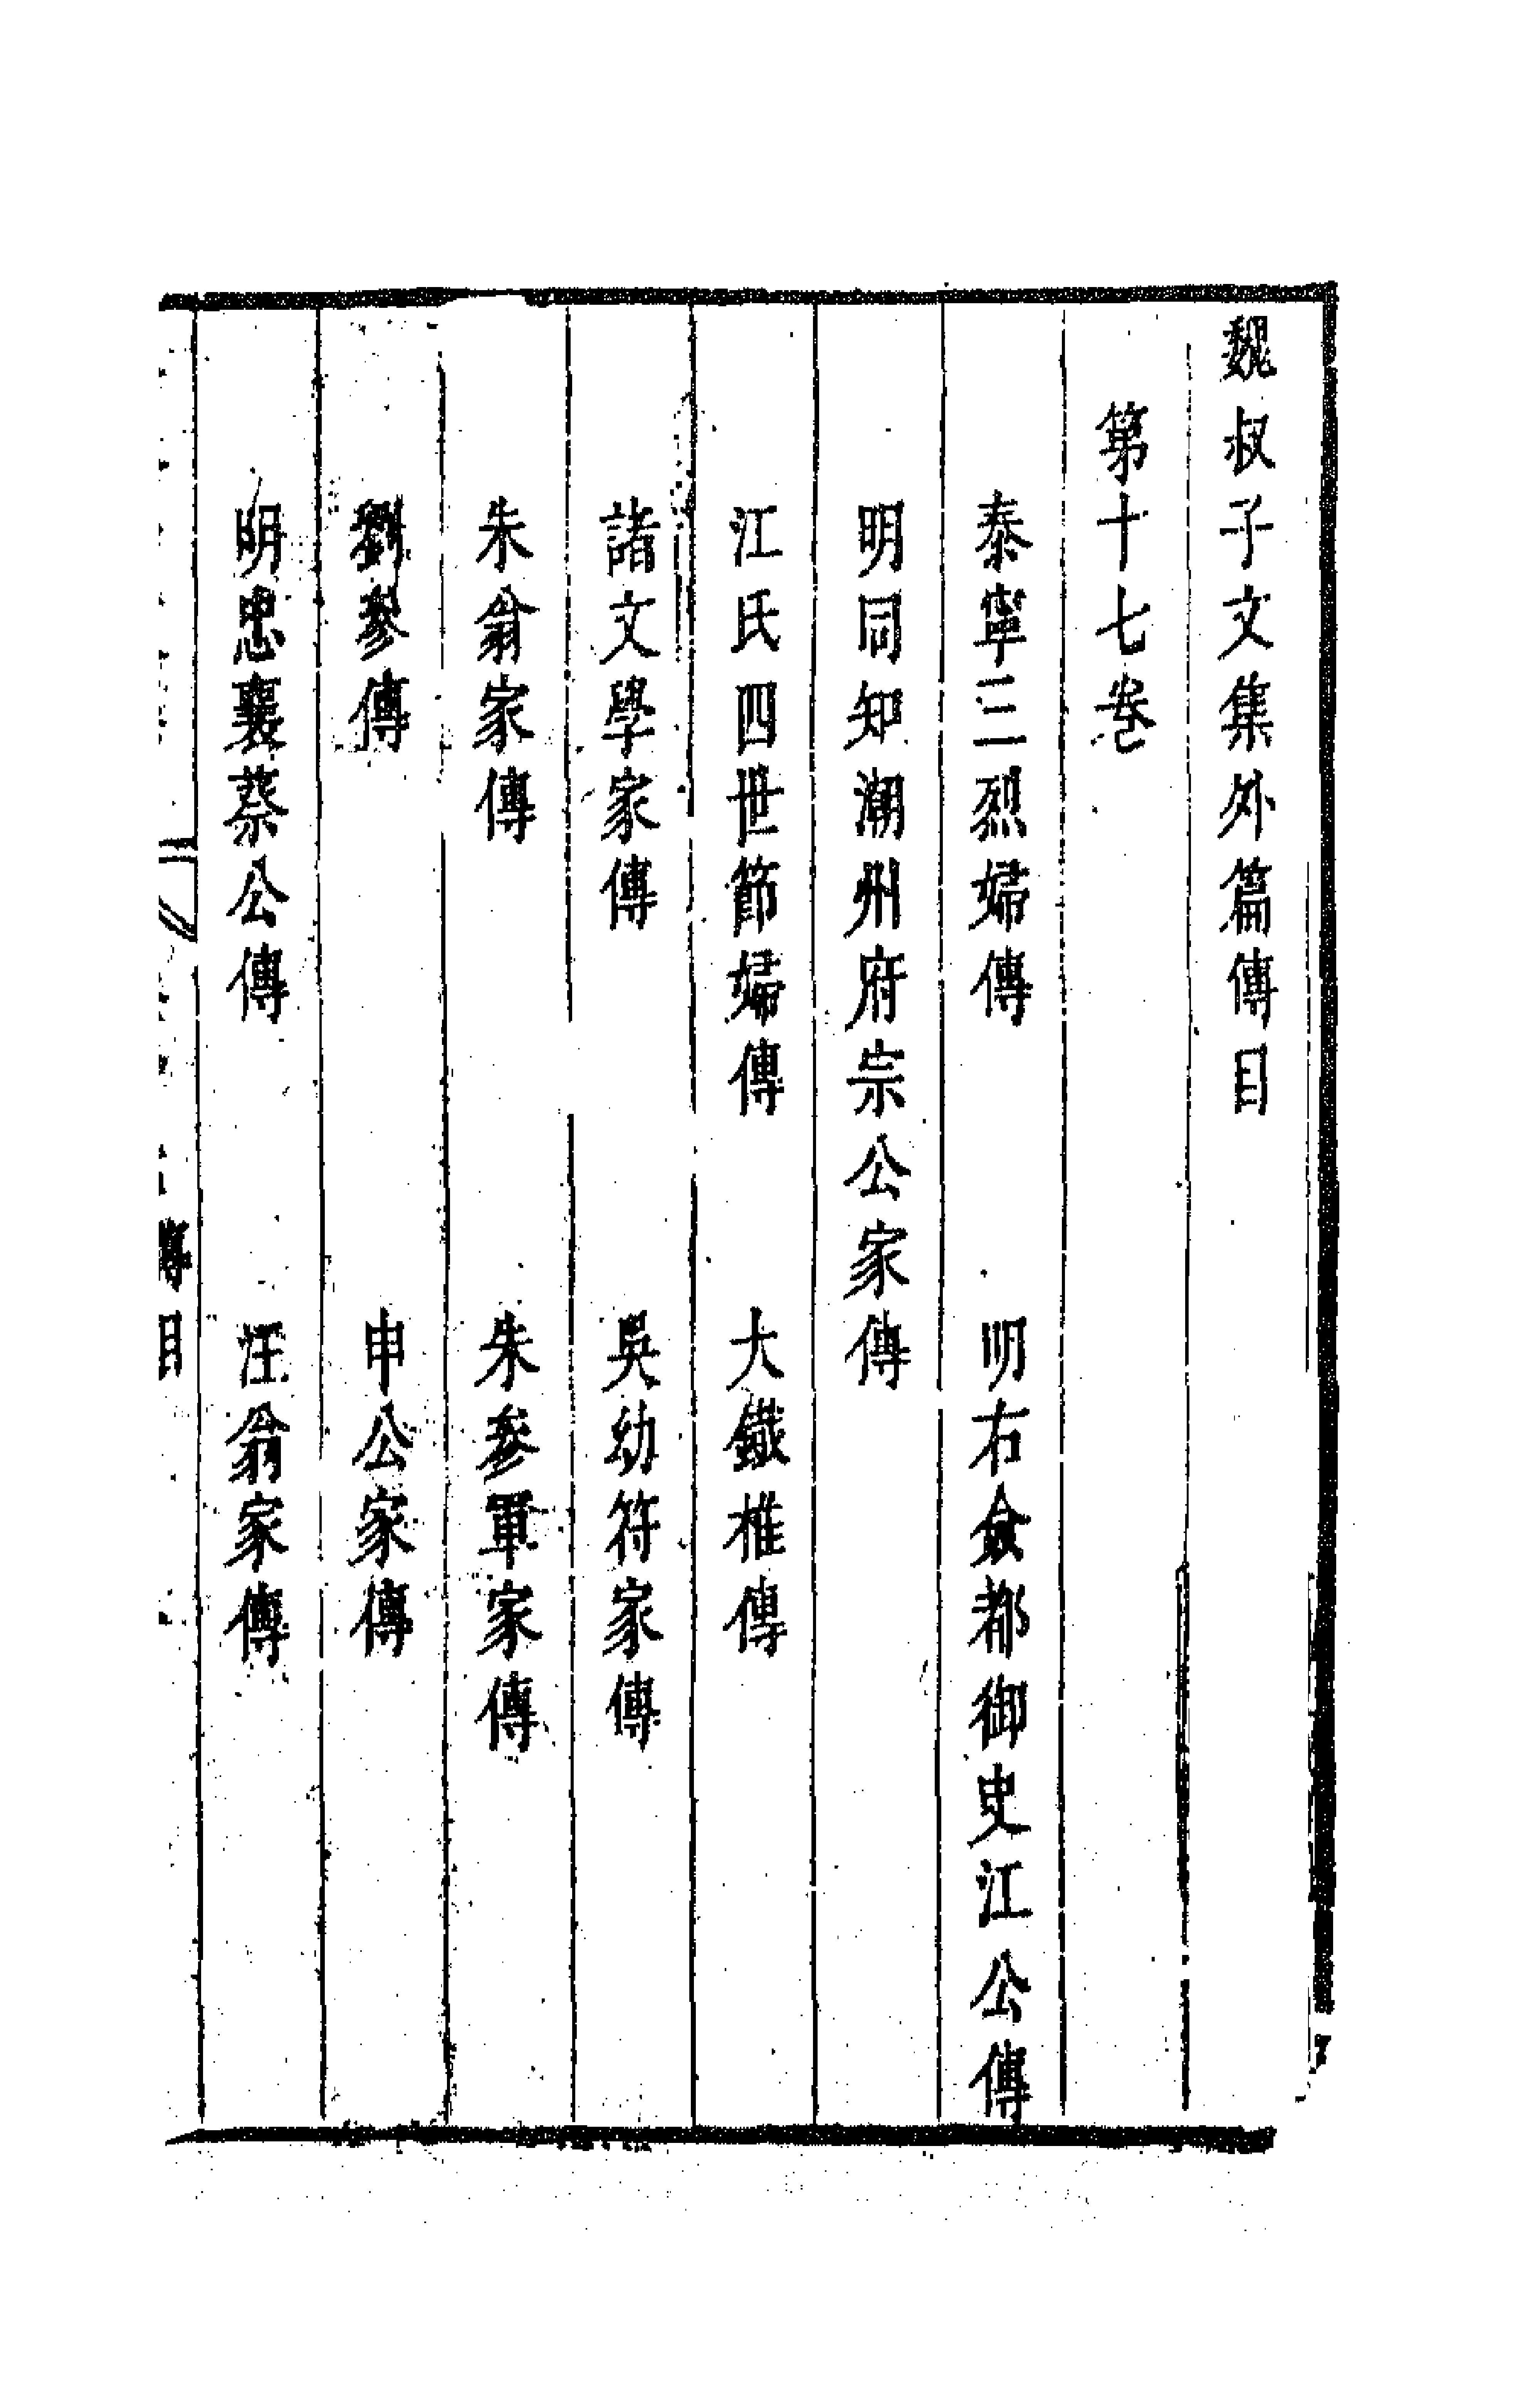 魏叔子文集外篇傳目
第十七卷
泰寧三烈婦傳　明右僉都御史江公傳
明同知潮州府宗公家傳
江氏四世節婦傳　大鐵椎傳
諸文學家傳　吳幼符家傳
朱翁家傳　朱參軍家傳
劉參傳　申公家傳
明忠襄蔡公傳　汪翁家傳
傳目